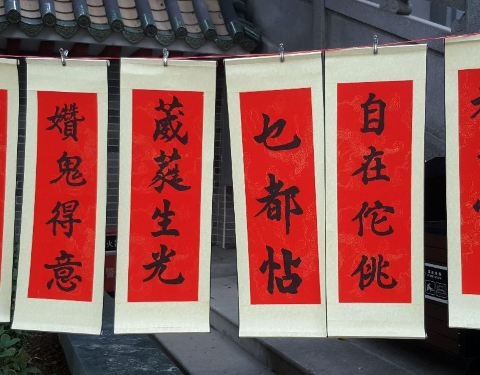 㜺鬼得意
葳蕤生光
乜都帖
自在佗佻